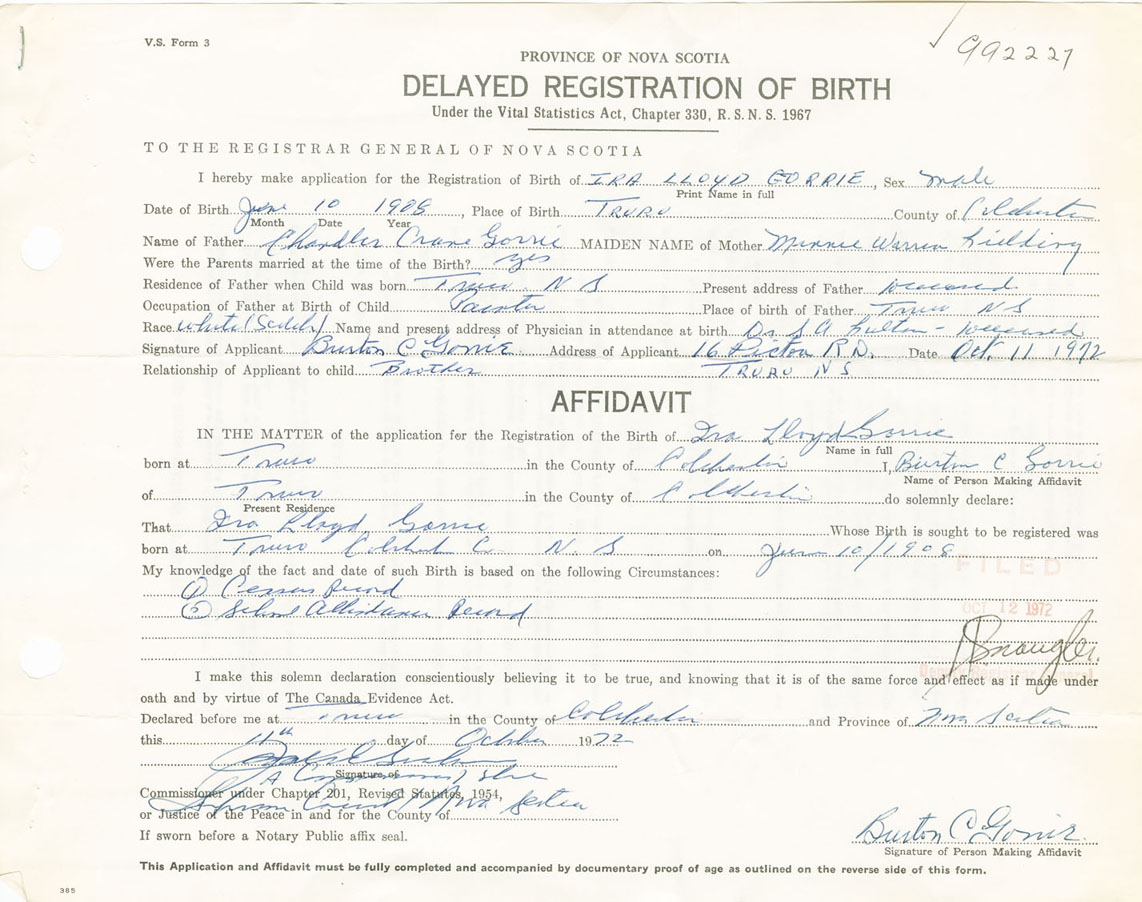 V.S. Form 3
992227
PROVINCE OF NOVA SCOTIA
DELAYED REGISTRATION OF BIRTH
Under the Vital Statistics Act, Chapter 330, R.S.N.S. 1967
TO THE REGISTRAR GENERAL OF NOVA SCOTIA
I hereby make application for the Registration of Birth of IRA LLOYD GORRIE, Sex Male
Print Name in full
Date of Birth June 10 1908, Place of Birth TRURO County of Colchester
Month Date Year
Name of Father Chandler Crane Gorrie MAIDEN NAME of Mother Minnie Warren Fielding
Were the Parents married at the time of the Birth? yes
Residence of Father when Child was born Truro N S Present address of Father deceased
Occupation of Father at Birth of Child Painter Place of birth of Father Truro N S
Race White Name and present address of Physician in attendance at birth Dr. - deceased
Signature of Applicant Burton C Gorrie Address of Applicant 16 Picton RD. Date Oct. 11 1972
Relationship of Applicant to child Brother TRURO N S
AFFIDAVIT
IN THE MATTER of the application for the Registration of the Birth of Ira Lloyd Gorrie
Name in full
born at Truro in the County of Colchester I, Burton C Gorrie
Name of Person Making Affidavit
of Truro in the County of Colchester do solemnly declare:
Present Residence
That Ira Lloyd Gorrie Whose Birth is sought to be registered was
born at Truro Colchest Co. N. S on June 10/1908
My knowledge of the fact and date of such Birth is based on the following Circumstances:
① Census Record
② School Attendance Record
FILED
OCT 12 1972
I make this solemn declaration conscientiously believing it to be true, and knowing that it is of the same force and effect as if made under
oath and by virtue of The Canada Evidence Act.
Declared before me at Truro in the County of Colchester and Province of Nova Scotia
this 11th day of October 1972
Signature of
Commissioner under Chapter 201, Revised Statutes, 1954,
or Justice of the Peace in and for the County of
If sworn before a Notary Public affix seal.
Burton C Gorrie
Signature of Person Making Affidavit
This Application and Affidavit must be fully completed and accompanied by documentary proof of age as outlined on the reverse side of this form.
385